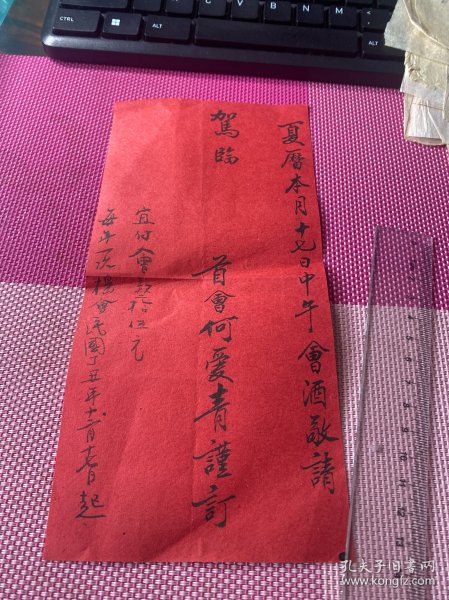 夏曆本月十七日中午會酒敬請
駕臨
首會何愛青謹訂
宜付會款拾伍元
每年一次標會民國丁丑年十一月十七日起
CTRL
ALT
ALT
CTRL
孔夫子旧书网
www.kongfz.com